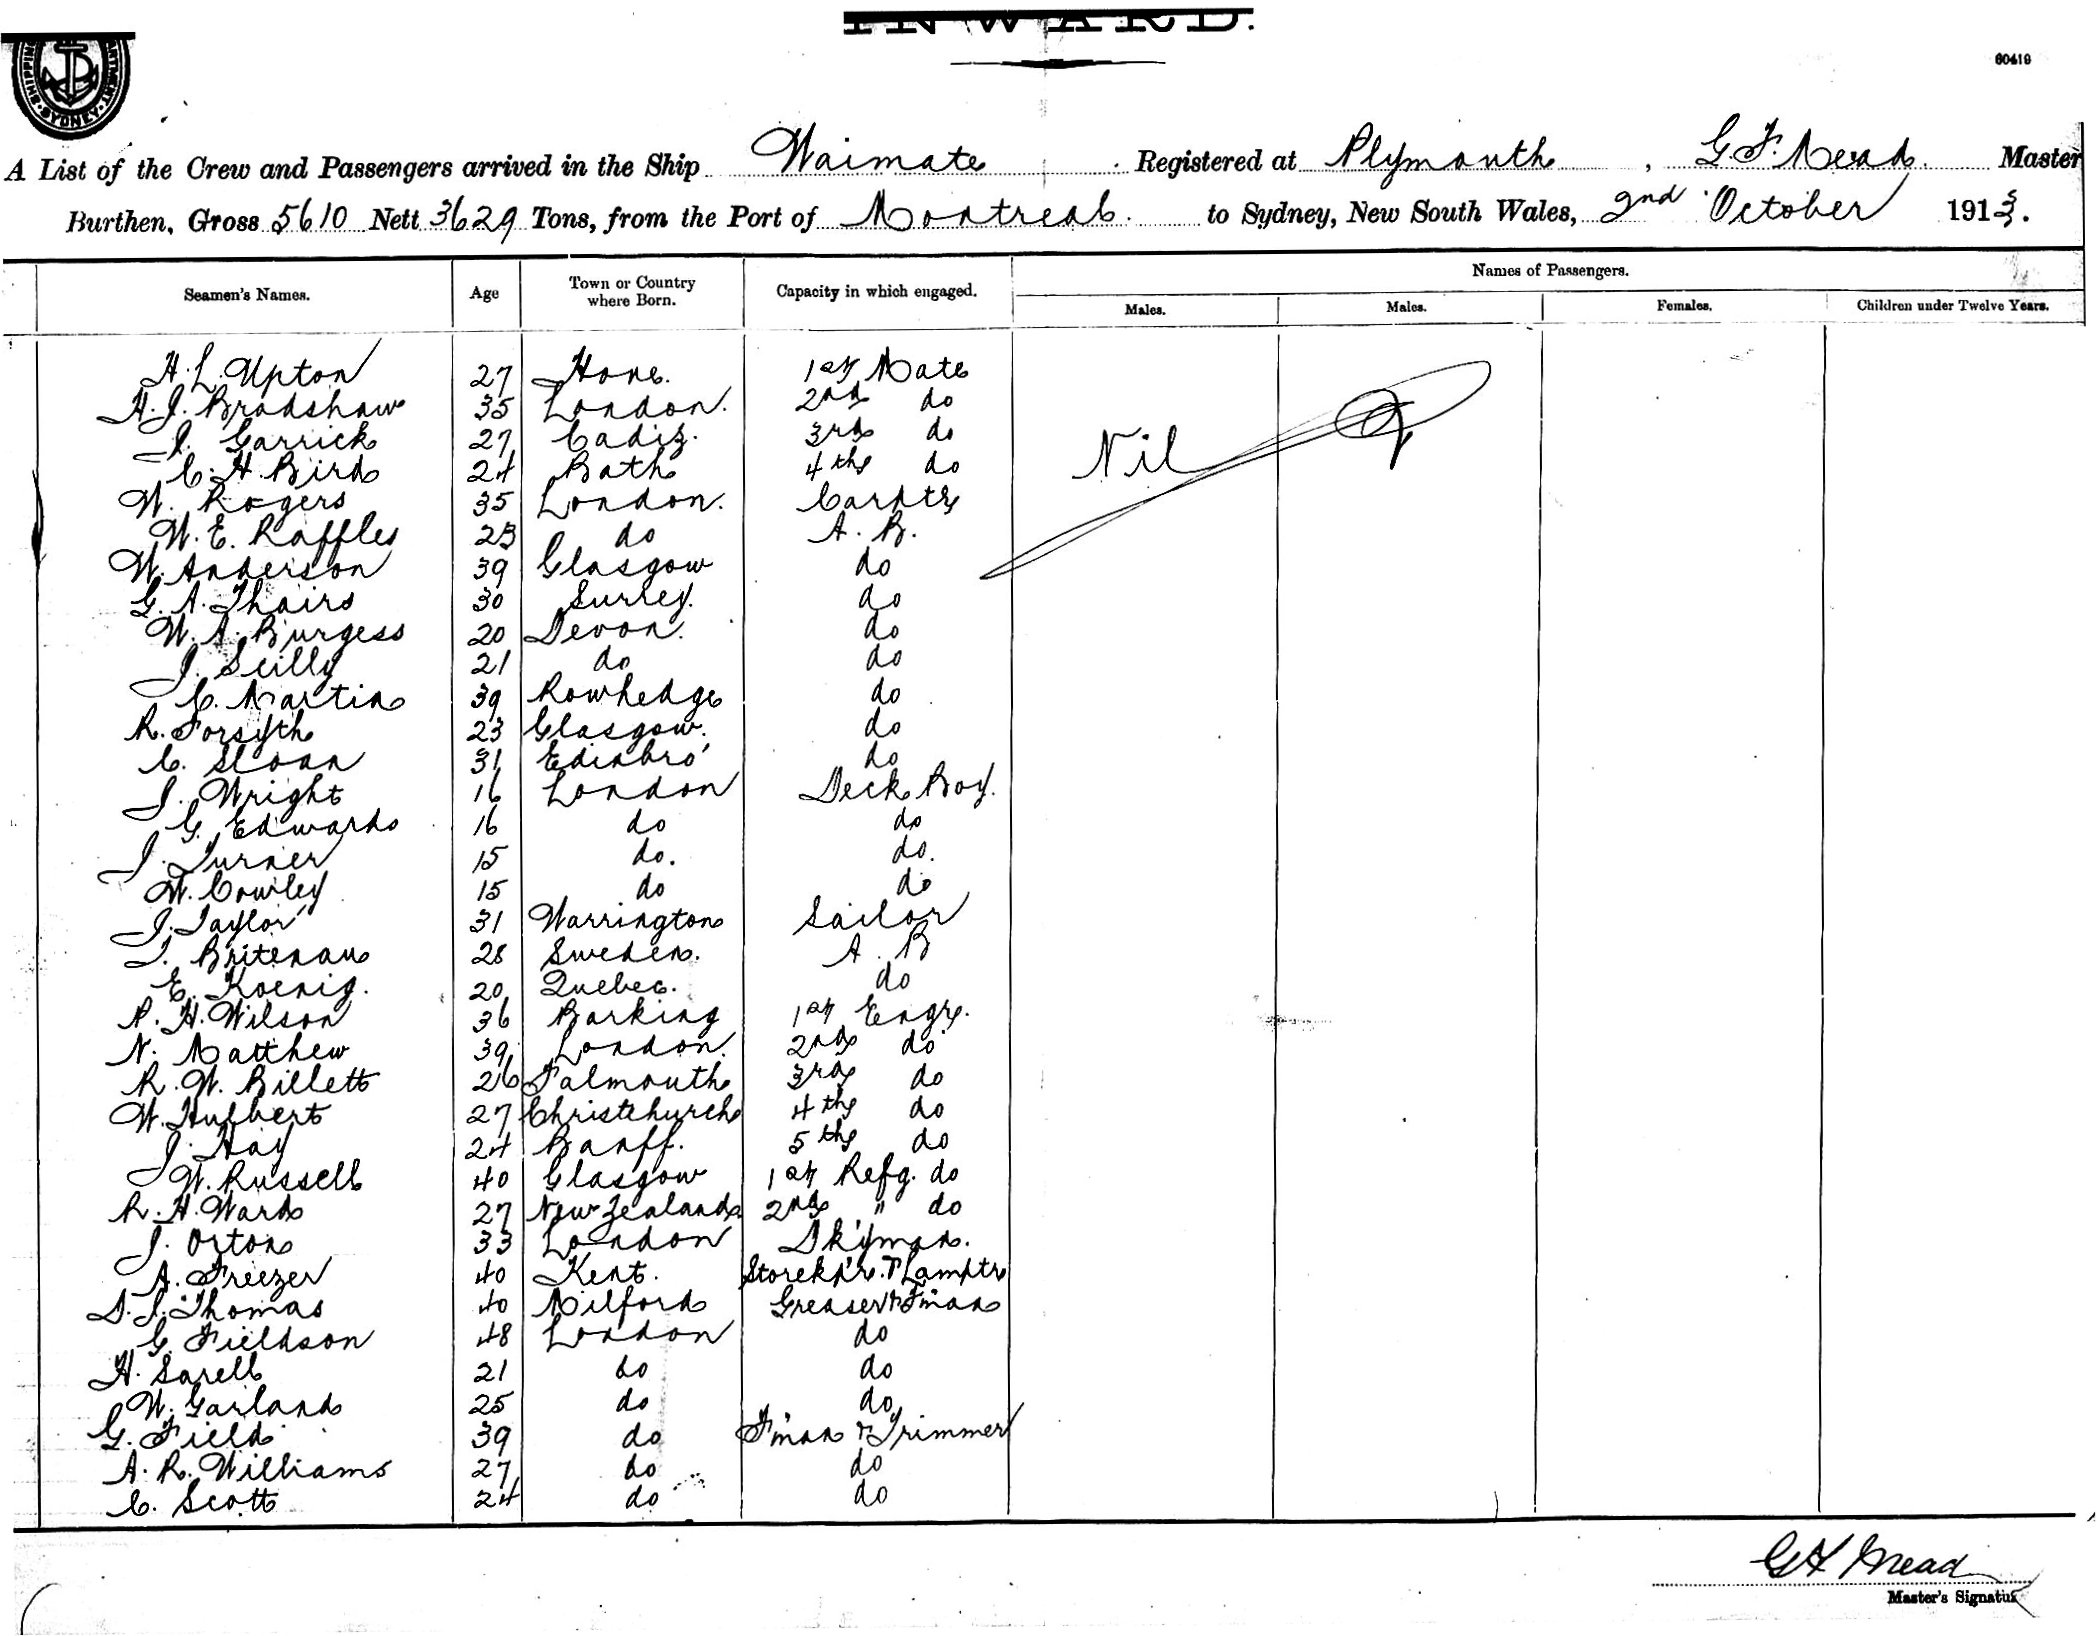 INWARD.
60419
SYDNEY
A List of the Crew and Passengers arrived in the Ship Waimate . Registered at Plymouth , G F. Mead. Master
Burthen, Gross 5610 Nett 3629 Tons, from the Port of Montreal. to Sydney, New South Wales, 2nd October 1913.
Names of Passengers.
Seamen's Names. Age Town or Country where Born. Capacity in which engaged. Males. Males. Females. Children under Twelve Years.
H. L. Upton 27 Hove. 1st Mate
H. J. Bradshaw 35 London. 2nd do
J. Garrick 27 Cadiz. 3rd do Nil
C. H. Bird 24 Bath 4th do
W. Rogers 35 London. Carptr
W. E. Raffles 23 do A. B.
W. Anderson 39 Glasgow do
G. A. Thairs 30 Surrey. do
W. A. Burgess 20 Devon. do
J. Scilly 21 do do
C. Martin 39 Rowhedge do
R. Forsyth 23 Glasgow. do
C. Sloan 31 Edinbro' do
J. Wright 16 London Deck Boy.
G. Edwards 16 do do
J. Turner 15 do. do.
W. Cowley 15 do do
J. Taylor 31 Warrington Sailor
T. Britenau 28 Sweden. A. B
E. Koenig. 20 Quebec. do
P. H. Wilson 36 Barking 1st Engr.
N. Matthew 39 London. 2nd do
R. W. Billett 26 Falmouth 3rd do
W. Hulbert 27 Christchurch 4th do
J. Hay 24 Banff. 5th do
W. Russell 40 Glasgow 1st Refg. do
R. H. Ward 27 New Zealand 2nd " do
J. Orton 33 London Dkyman.
A. Freezer 40 Kent. Storekpr. & Lamptr
D. J. Thomas 40 Milford Greaser & F'man
G. Fieldson 48 London do
H. Sarell 21 do do
W. Garland 25 do do
G. Field 39 do F'man & Trimmer
A. R. Williams 27 do do
C. Scott 24 do do
G F Mead
Master's Signature